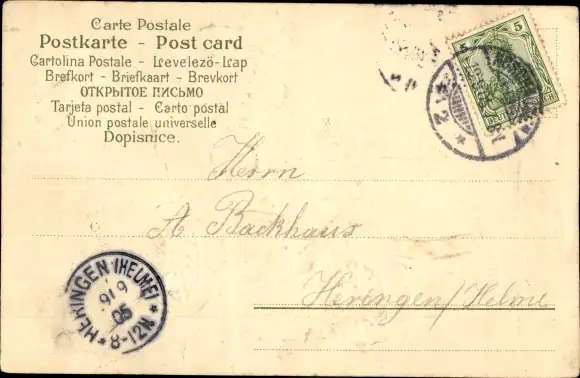 Carte Postale
Postkarte - Post card
Cartolina Postale - Levelező-Lap
Brefkort - Briefkaart - Brevkort
ОТКРЫТОЕ ПИСЬМО
Tarjeta postal - Carto postal
Union postale universelle
Dopisnice.
5
Herrn
A. Backhaus
Heringen/Helme
* HERINGEN (HELME) *
9 9
05
8-12V.